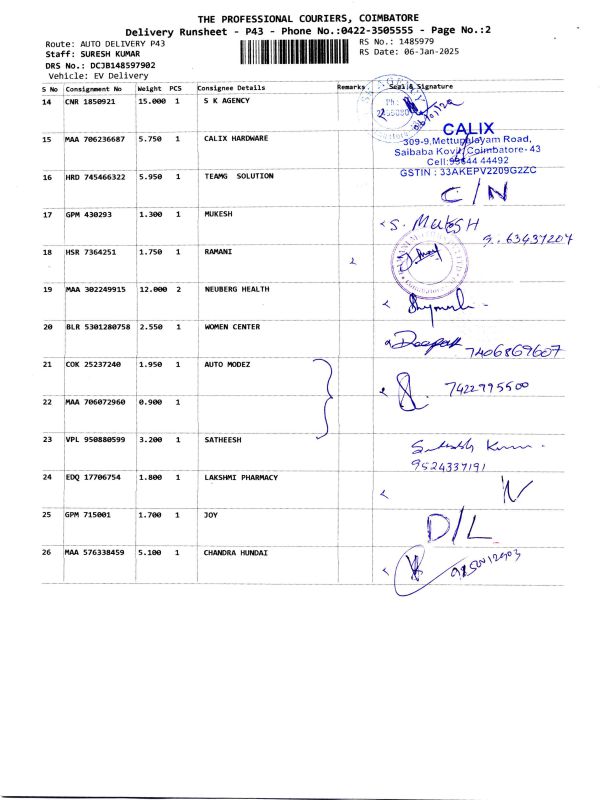 THE PROFESSIONAL COURIERS, COIMBATORE
Delivery Runsheet - P43 - Phone No.:0422-3505555 - Page No.:2
Route: AUTO DELIVERY P43
RS No.: 1485979
Staff: SURESH KUMAR
RS Date: 06-Jan-2025
DRS No.: DCJB148597902
Vehicle: EV Delivery
S No Consignment No Weight PCS Consignee Details Remarks Seal & Signature
14 CNR 1850921 15.000 1 S K AGENCY
15 MAA 706236687 5.750 1 CALIX HARDWARE
CALIX
309-9,Mettupalayam Road,
Saibaba Kovil, Coimbatore- 43
Cell:99644 44492
GSTIN : 33AKEPV2209G2ZC
16 HRD 745466322 5.950 1 TEAMG SOLUTION C/N
17 GPM 430293 1.300 1 MUKESH S. MUKESH
18 HSR 7364251 1.750 1 RAMANI
19 MAA 302249915 12.000 2 NEUBERG HEALTH
20 BLR 5301280758 2.550 1 WOMEN CENTER Deepak 7406869607
21 COK 25237240 1.950 1 AUTO MODEZ 7422995500
22 MAA 706072960 0.900 1
23 VPL 950880599 3.200 1 SATHEESH
9524337191
24 EDQ 17706754 1.800 1 LAKSHMI PHARMACY
25 GPM 715001 1.700 1 JOY D/L
26 MAA 576338459 5.100 1 CHANDRA HUNDAI